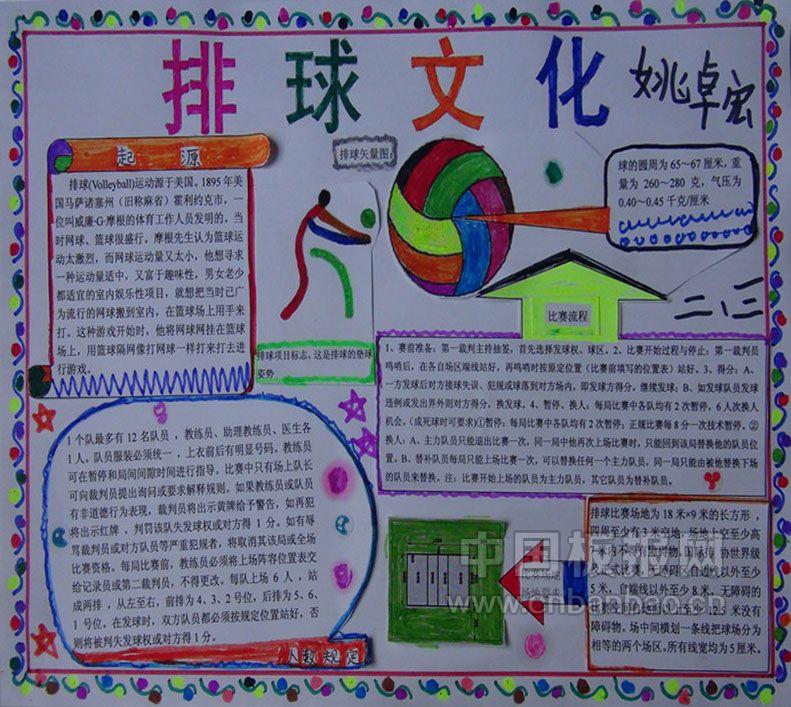 排球文化
姚卓宏
二、三
起 源
排球(Volleyball)运动源于美国。1895 年美
国马萨诸塞州（旧称麻省）霍利约克市，一
位叫威廉·G·摩根的体育工作人员发明的。当
时网球、篮球很盛行。摩根先生认为篮球运
动太激烈，而网球运动量又太小，他想寻求
一种运动量适中，又富于趣味性，男女老少
都适宜的室内娱乐性项目，就想把当时已广
为流行的网球搬到室内，在篮球场上用手来
打。这种游戏开始时，他将网球网挂在篮球
场上，用篮球隔网像打网球一样打来打去进
行游戏。
排球矢量图：
球的圆周为 65～67 厘米，重
量为 260～280 克，气压为
0.40～0.45 千克/厘米
排球项目标志，这是排球的垫球
姿势
比赛流程
1、赛前准备：第一裁判主持抽签，首先选择发球权、球区。2、比赛开始过程与停止：第一裁判员
鸣哨后，在各自场区端线站好，再鸣哨时按原定位置（比赛前填写的位置表）站好。3、得分：A、
一方发球后对方接球失误、犯规或球落到对方场内，即发球方得分，继续发球；B、如发球队员发球
违例或发出界外则对方得分，换发球。4、暂停、换人：每局比赛中各队均有 2 次暂停，6 人次换人
机会。（成死球时可要求)①暂停：每局比赛中各队均有 2 次暂停；正规比赛每 8 分一次技术暂停。②
换人：A、主力队员只能退出比赛一次，同一局中他再次上场比赛时，只能回到该局替换他的队员位
置。B、替补队员每局只能上场比赛一次，可以替换任何一个主力队员，同一局只能由被他替换下场
的队员来替换。注：比赛开始上场的队员为主力队员，其它队员为替补队员。
1 个队最多有 12 名队员，教练员、助理教练员、医生各
1 人。队员服装必须统一，上衣前后有明显号码。教练员
可在暂停和局间间隙时间进行指导。比赛中只有场上队长
可向裁判员提出询问或要求解释规则。如果教练员或队员
有非道德行为表现，裁判员将出示黄牌给予警告，如再犯
将出示红牌，判罚该队失发球权或对方得 1 分。如有辱
骂裁判员或对方队员等严重犯规者，将取消其该局或全场
比赛资格。每局比赛前，教练员必须将上场阵容位置表交
给记录员或第二裁判员，不得更改，每队上场 6 人，站
成两排，从左至右，前排为 4、3、2 号位，后排为 5、6、
1 号位。在发球时，双方队员都必须按规定位置站好，否
则将被判失发球权或对方得 1 分。
人数规定
场地要求
排球比赛场地为 18 米×9 米的长方形，
四周至少有 3 米空地，场地上空至少高
5 米，端线以外至少 8 米，无障碍的
障碍物。场中间横划一条线把球场分为
相等的两个场区。所有线宽均为 5 厘米。
中国板报网
www.cnbanbao.cn